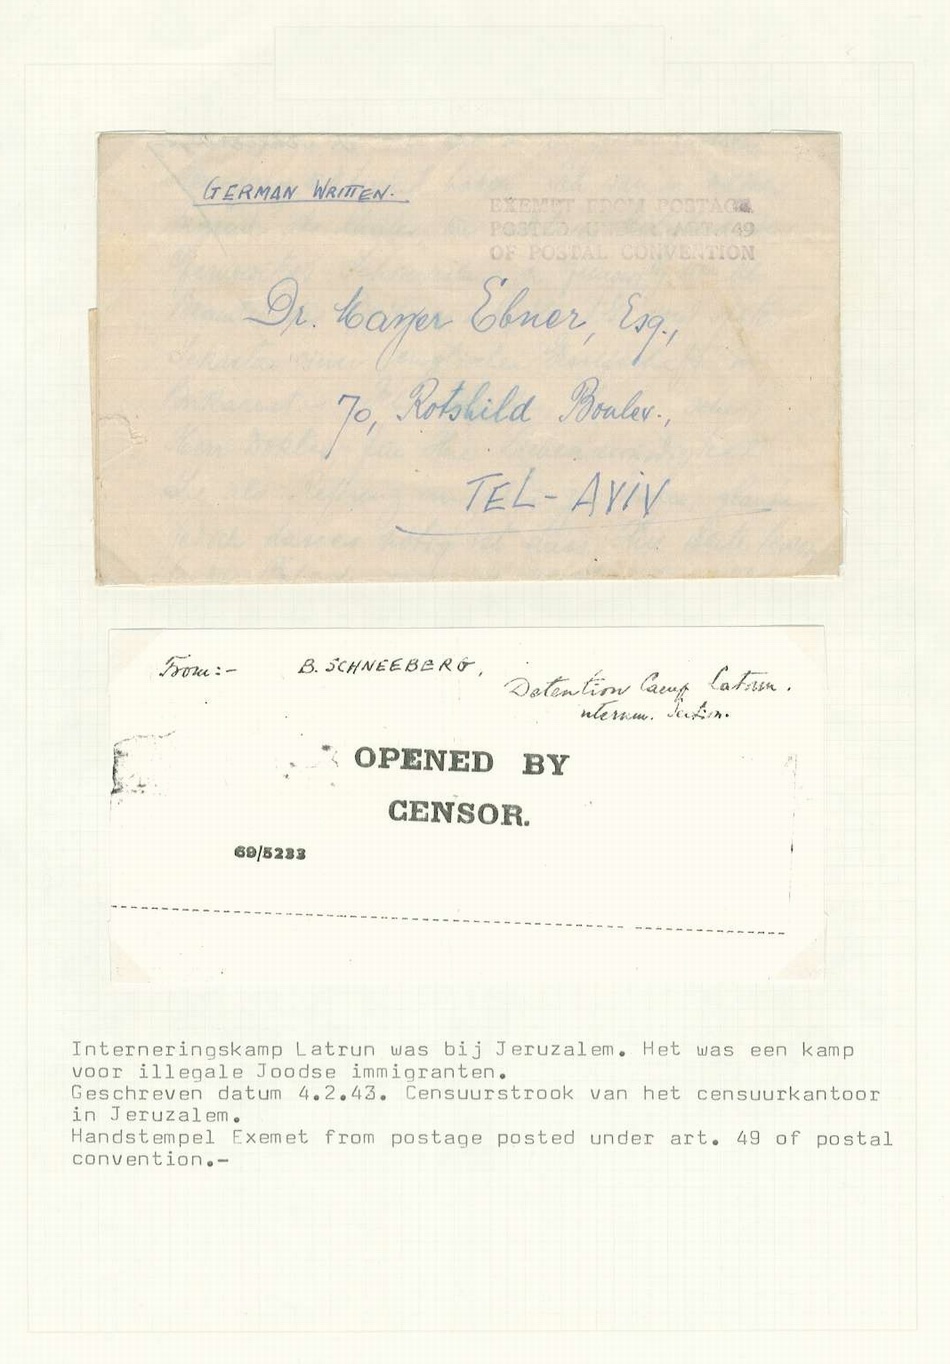 GERMAN WRITTEN.
EXEMPT FROM POSTAGE
POSTED UNDER ART. 49
OF POSTAL CONVENTION
Dr. Mayer Ebner, Esq.,
70, Rotshild Boulev.,
TEL-AVIV
From:- B. SCHNEEBERG,
Detention Camp Latrun.
OPENED BY
CENSOR.
69/5233
Interneringskamp Latrun was bij Jeruzalem. Het was een kamp
voor illegale Joodse immigranten.
Geschreven datum 4.2.43. Censuurstrook van het censuurkantoor
in Jeruzalem.
Handstempel Exemet from postage posted under art. 49 of postal
convention.-